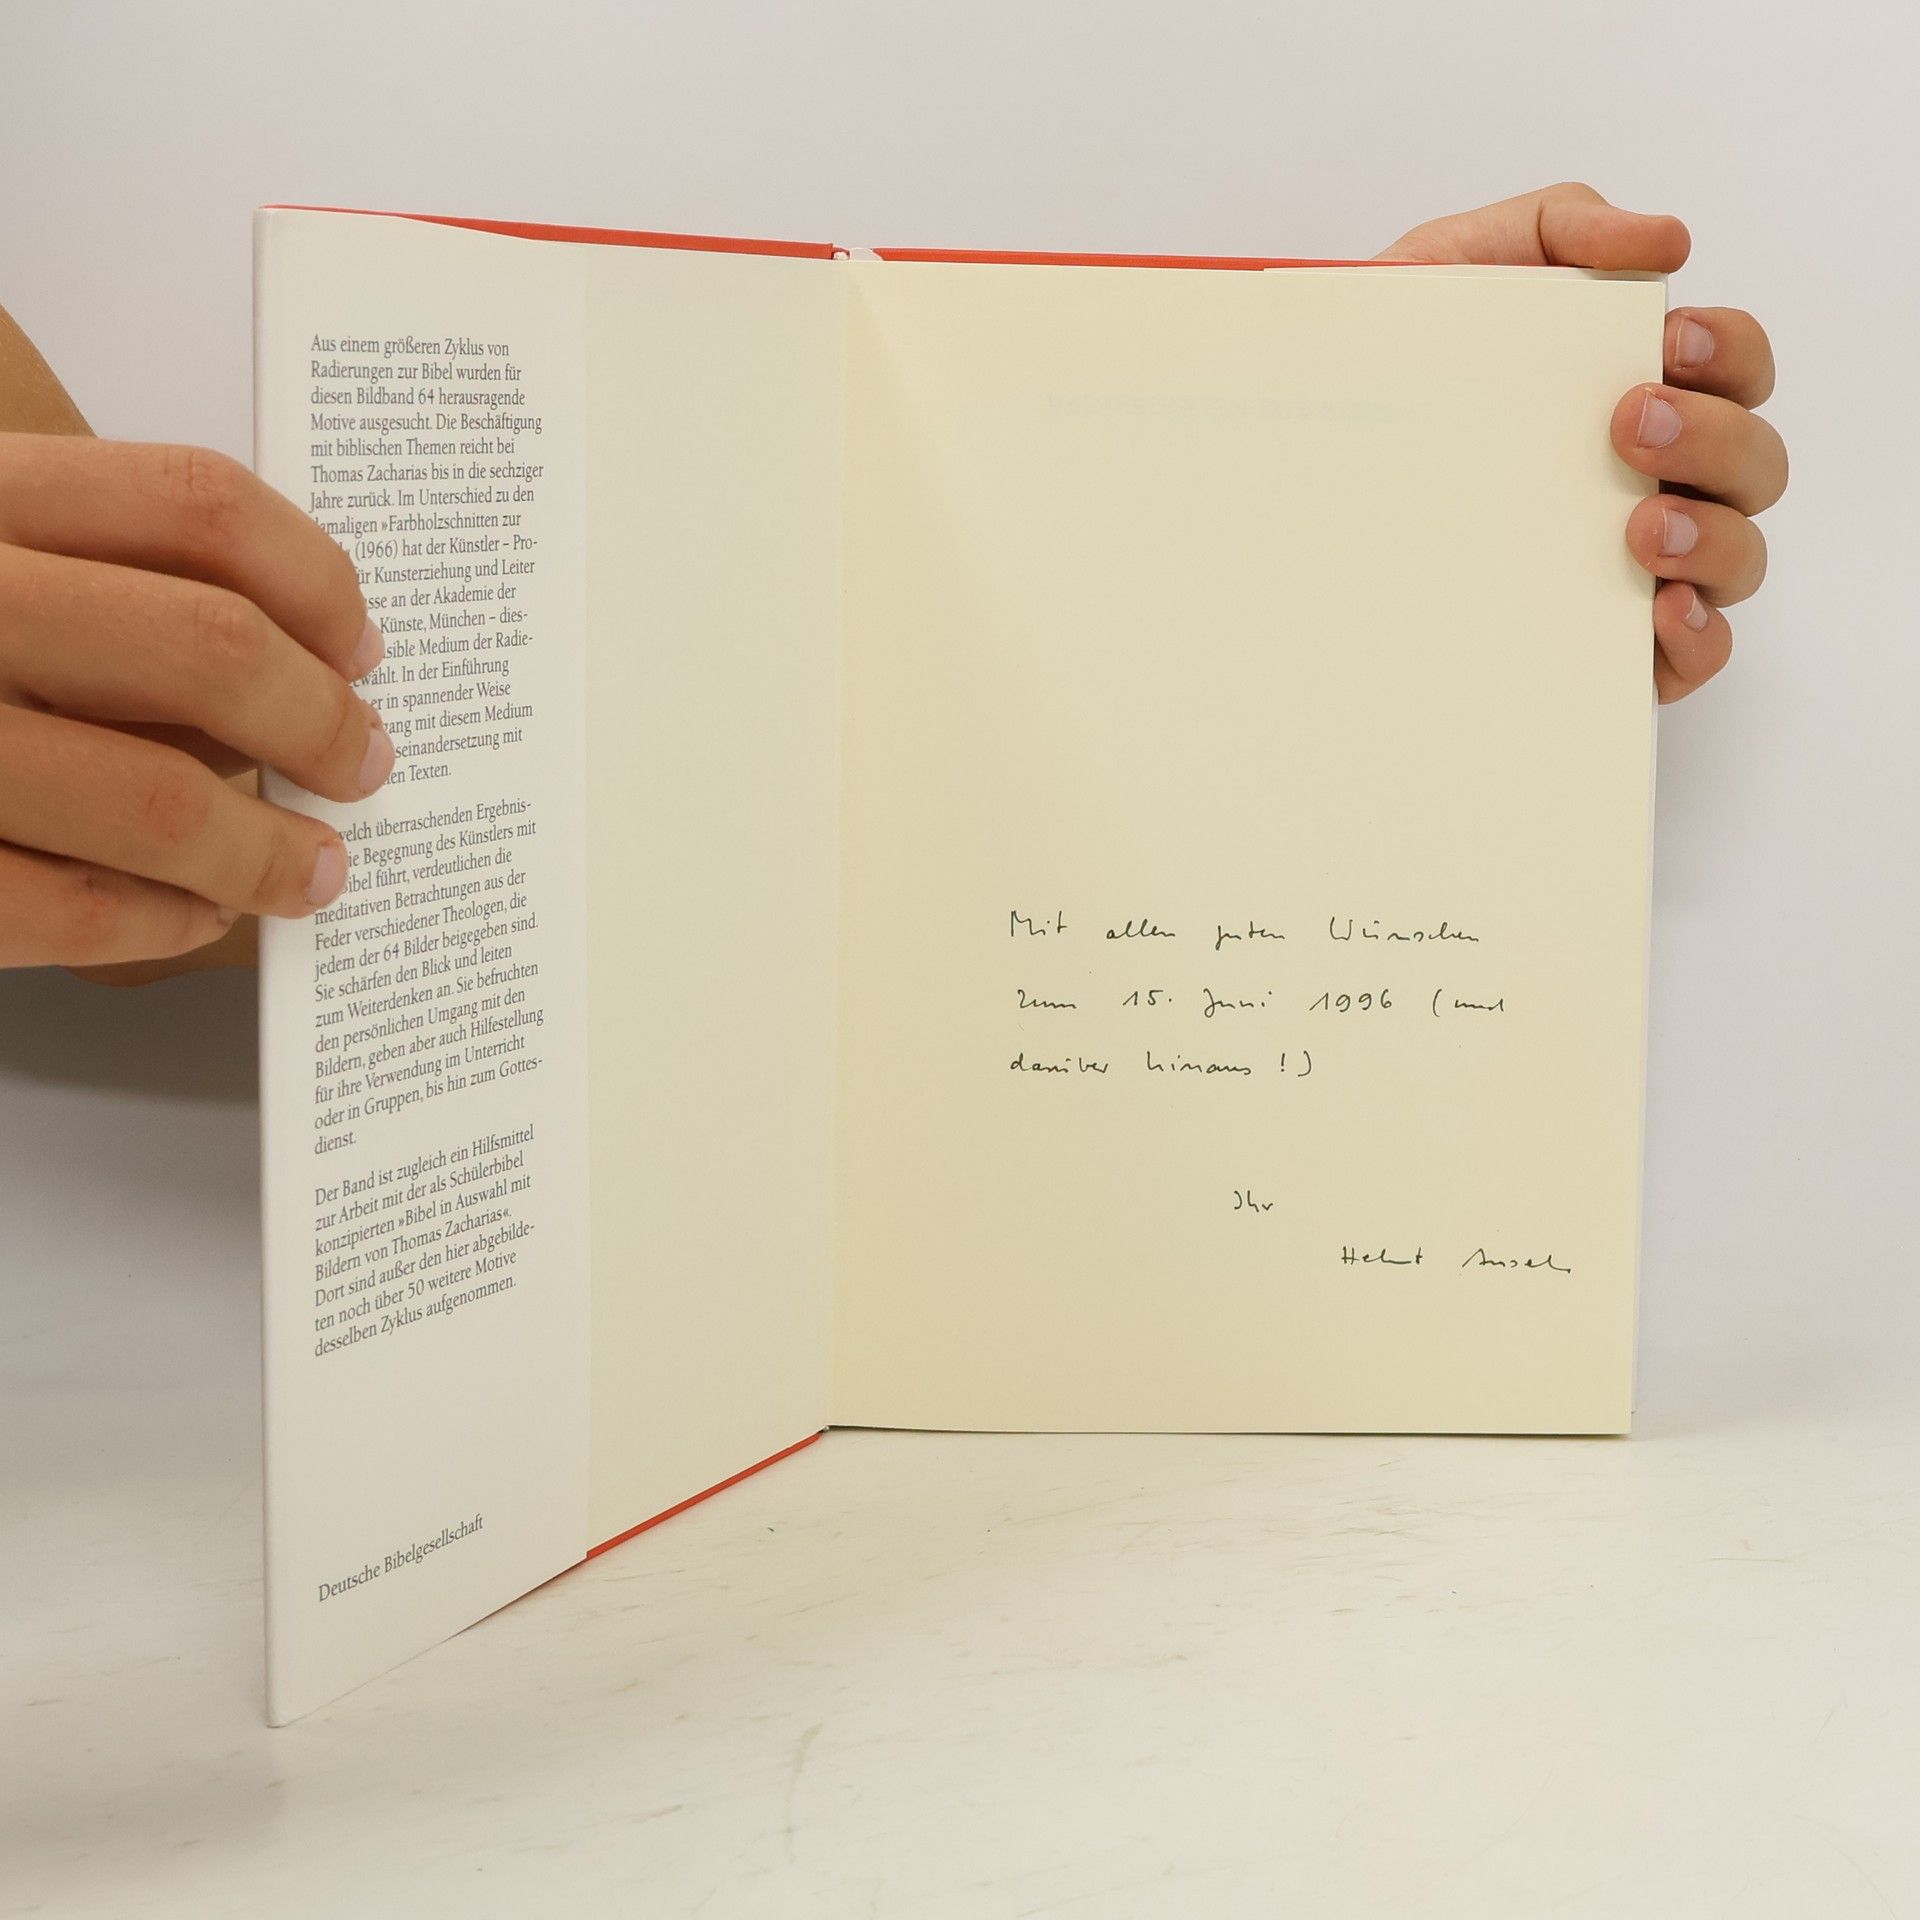 Aus einem größeren Zyklus von
Radierungen zur Bibel wurden für
diesen Bildband 64 herausragende
Motive ausgesucht. Die Beschäftigung
mit biblischen Themen reicht bei
Thomas Zacharias bis in die sechziger
Jahre zurück. Im Unterschied zu den
damaligen »Farbholzschnitten zur
(1966) hat der Künstler – Pro-
für Kunsterziehung und Leiter
an der Akademie der
Künste, München – dies-
Medium der Radie-
In der Einführung
er in spannender Weise
mit diesem Medium
mit
Texten.
welch überraschenden Ergebnis-
die Begegnung des Künstlers mit
Bibel führt, verdeutlichen die
meditativen Betrachtungen aus der
Feder verschiedener Theologen, die
jedem der 64 Bilder beigegeben sind.
Sie schärfen den Blick und leiten
zum Weiterdenken an. Sie befruchten
den persönlichen Umgang mit den
Bildern, geben aber auch Hilfestellung
für ihre Verwendung im Unterricht
oder in Gruppen, bis hin zum Gottes-
dienst.
Der Band ist zugleich ein Hilfsmittel
zur Arbeit mit der als Schülerbibel
konzipierten »Bibel in Auswahl mit
Bildern von Thomas Zacharias«.
Dort sind außer den hier abgebilde-
ten noch über 50 weitere Motive
desselben Zyklus aufgenommen.
Deutsche Bibelgesellschaft
Mit allen guten Wünschen
zum 15. Juni 1996 (und
darüber hinaus!)
Ihr
Helmut